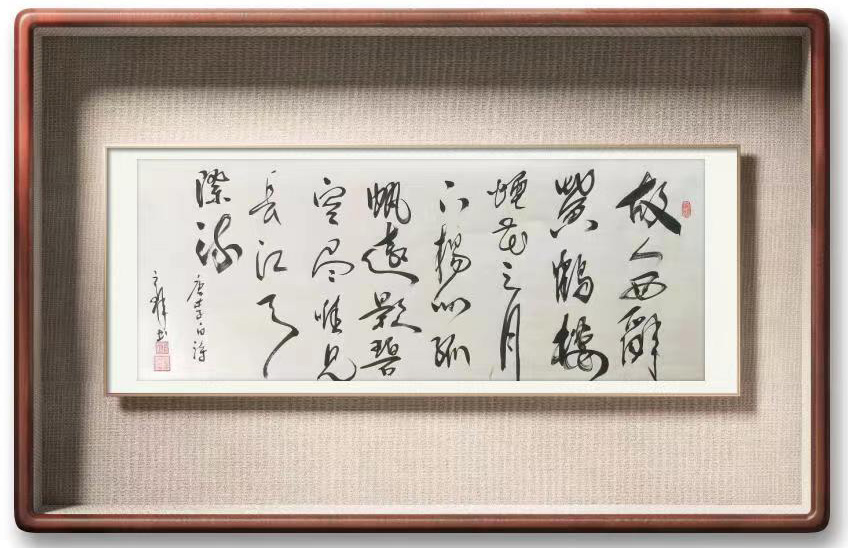 故人西辭
黄鶴樓
煙花三月
下揚州孤
帆遠影碧
空尽唯見
長江天
際流
唐李白詩